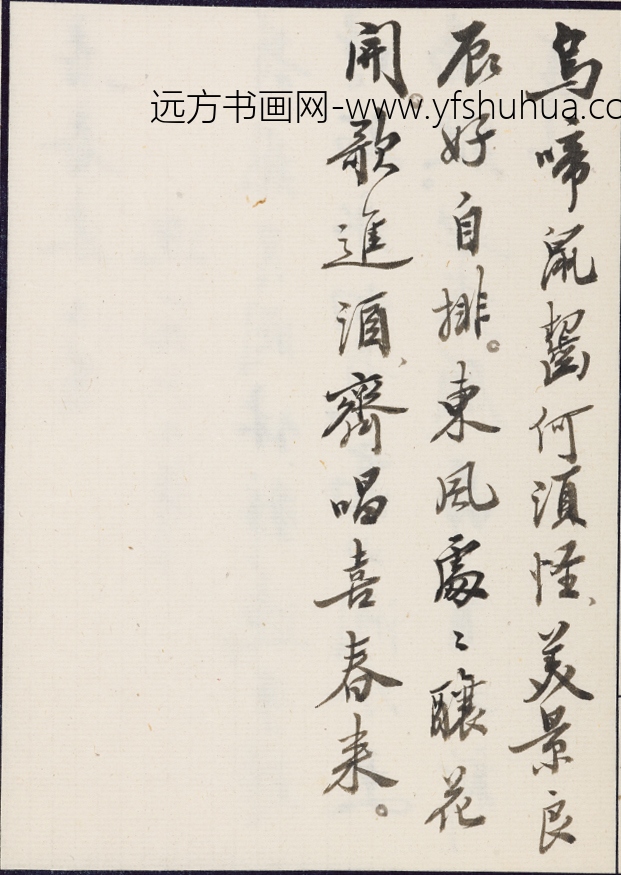 烏啼鼠齧何須怪、美景良
辰好自排。東風處〻釀花
開。歌進酒、齊唱喜春来。
远方书画网-www.yfshuhua.co